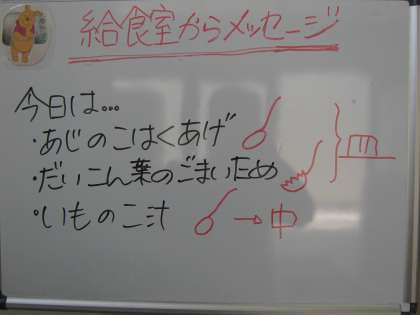 給食室からメッセージ
今日は…
・あじのこはくあげ
・だいこん葉のごまいため
・いものこ汁
→中